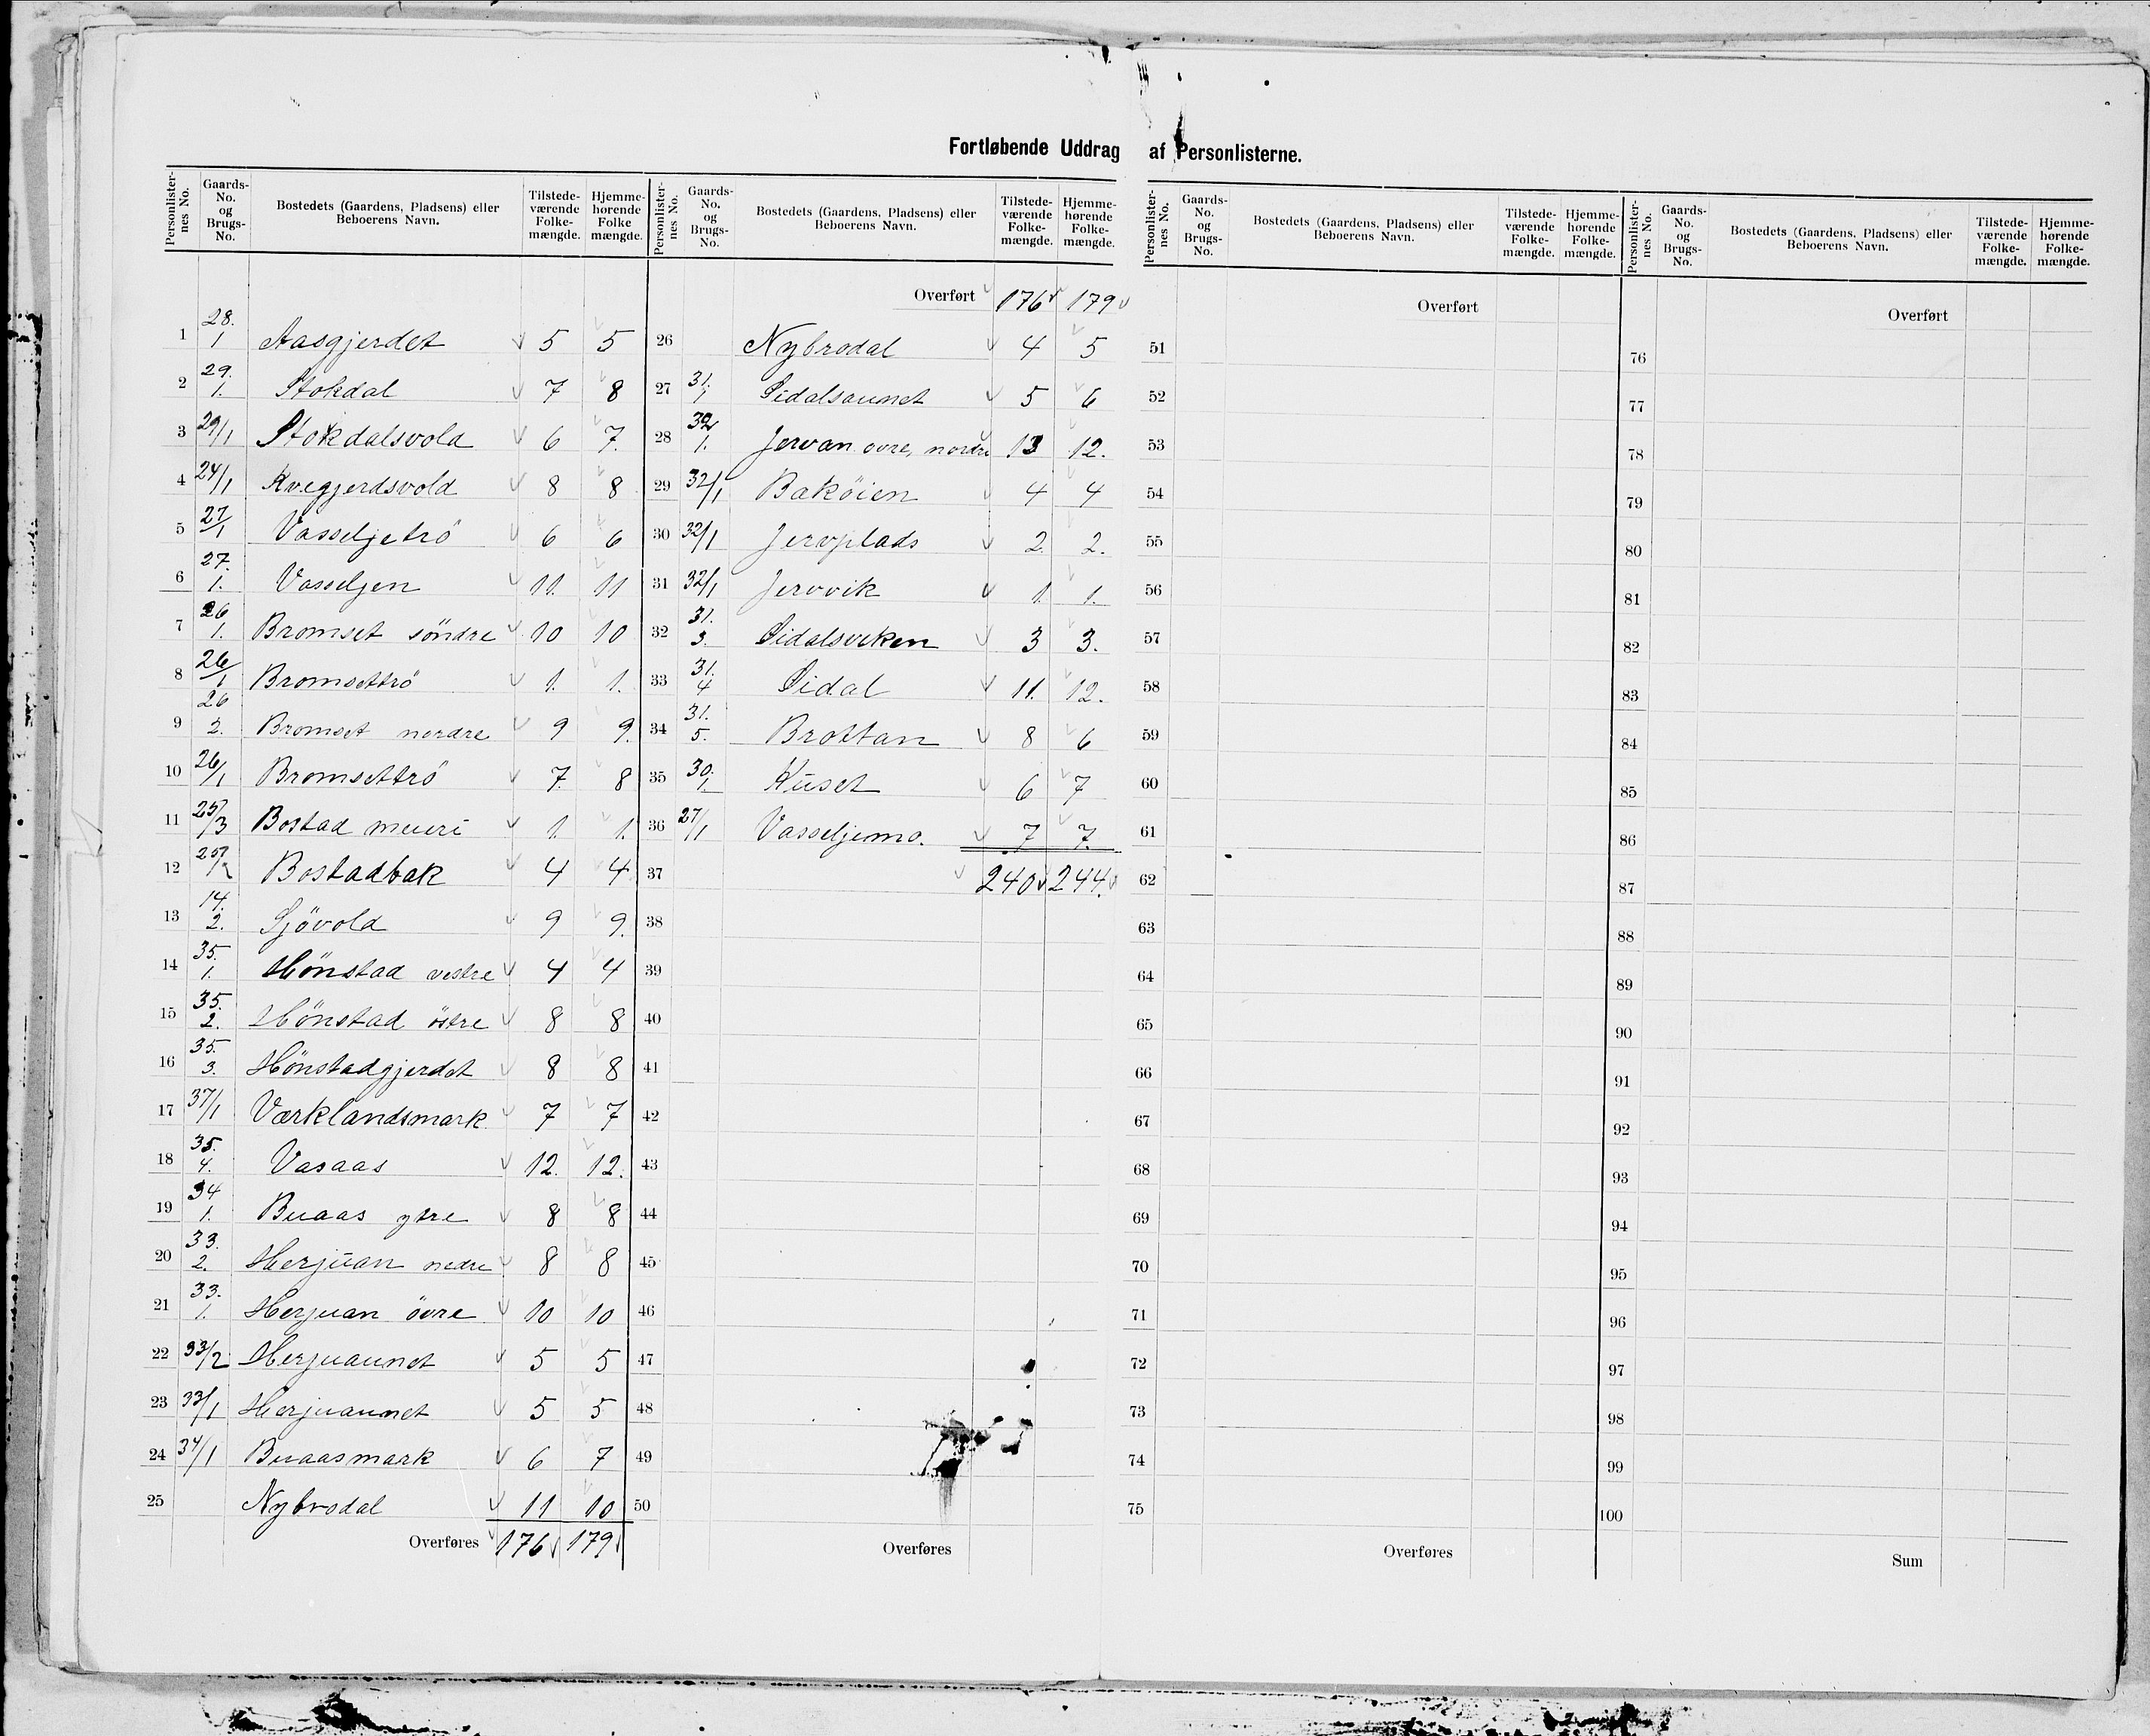 Fortløbende Uddrag af Personlisterne.
Personlisternes No. Gaards-No. og Brugs-No. Bostedets (Gaardens, Pladsens) eller Beboerens Navn. Tilstedeværende Folkemængde. Hjemmehørende Folkemængde.
1 28. 1 Aasgjerdet 5 5
2 29. 1. Stokdal 7 8
3 29/1 Stokdalsvold 6 7.
4 24/1 Kvegjerdsvold 8 8
5 27/1 Vasseljetrö 6 6
6 27. 1. Vasseljen 11. 11
7 26 1. Bromset söndre 10 10
8 26/1 Bromsettrö 1. 1.
9 26 2. Bromset nordre 9 9.
10 26/1 Bromsettrö 7. 8
11 25/3 Bostad meieri 1. 1.
12 25/2 Bostadbak 4 4
13 14. 2. Sjövold 9 9.
14 35. 1. Hönstad vestre 4 4
15 35. 2. Hönstad östre 8 8
16 35. 3. Hönstadgjerdet 8 8
17 37/1 Værklandsmark 7 7
18 35. 4. Vasaas 12. 12.
19 34 1. Buaas ytre 8 8
20 33. 2. Herjuan nedre 8 8
21 33. 1. Herjuan övre 10 10
22 33/2 Herjuaunet 5 5
23 33/1 Herjuaunet 5 5
24 34/1 Buaasmark 6 7
25 Nybrodal 11 10
Overføres 176 179
Personlisternes No. Gaards-No. og Brugs-No. Bostedets (Gaardens, Pladsens) eller Beboerens Navn. Tilstedeværende Folkemængde. Hjemmehørende Folkemængde.
Overført 176 179
26 Nybrodal 4 5
27 31. 1 Sidalsaunet 5 6
28 32 1. Jervan övre, nordre 13 12.
29 32/1 Baköien 4 4
30 32/1 Jervplads 2. 2.
31 32/1 Jervvik 1. 1.
32 31. 3. Sidalsviken 3 3.
33 31. 4 Sidal 11. 12.
34 31. 5. Brottan 8 6
35 30. 1. Kuset 6 7
36 27/1 Vasseljemo. 7 7.
37 240 244.
38
39
40
41
42
43
44
45
46
47
48
49
50
Overføres
Personlisternes No. Gaards-No. og Brugs-No. Bostedets (Gaardens, Pladsens) eller Beboerens Navn. Tilstedeværende Folkemængde. Hjemmehørende Folkemængde.
Overført
51
52
53
54
55
56
57
58
59
60
61
62
63
64
65
66
67
68
69
70
71
72
73
74
75
Overføres
Personlisternes No. Gaards-No. og Brugs-No. Bostedets (Gaardens, Pladsens) eller Beboerens Navn. Tilstedeværende Folkemængde. Hjemmehørende Folkemængde.
Overført
76
77
78
79
80
81
82
83
84
85
86
87
88
89
90
91
92
93
94
95
96
97
98
99
100
Sum